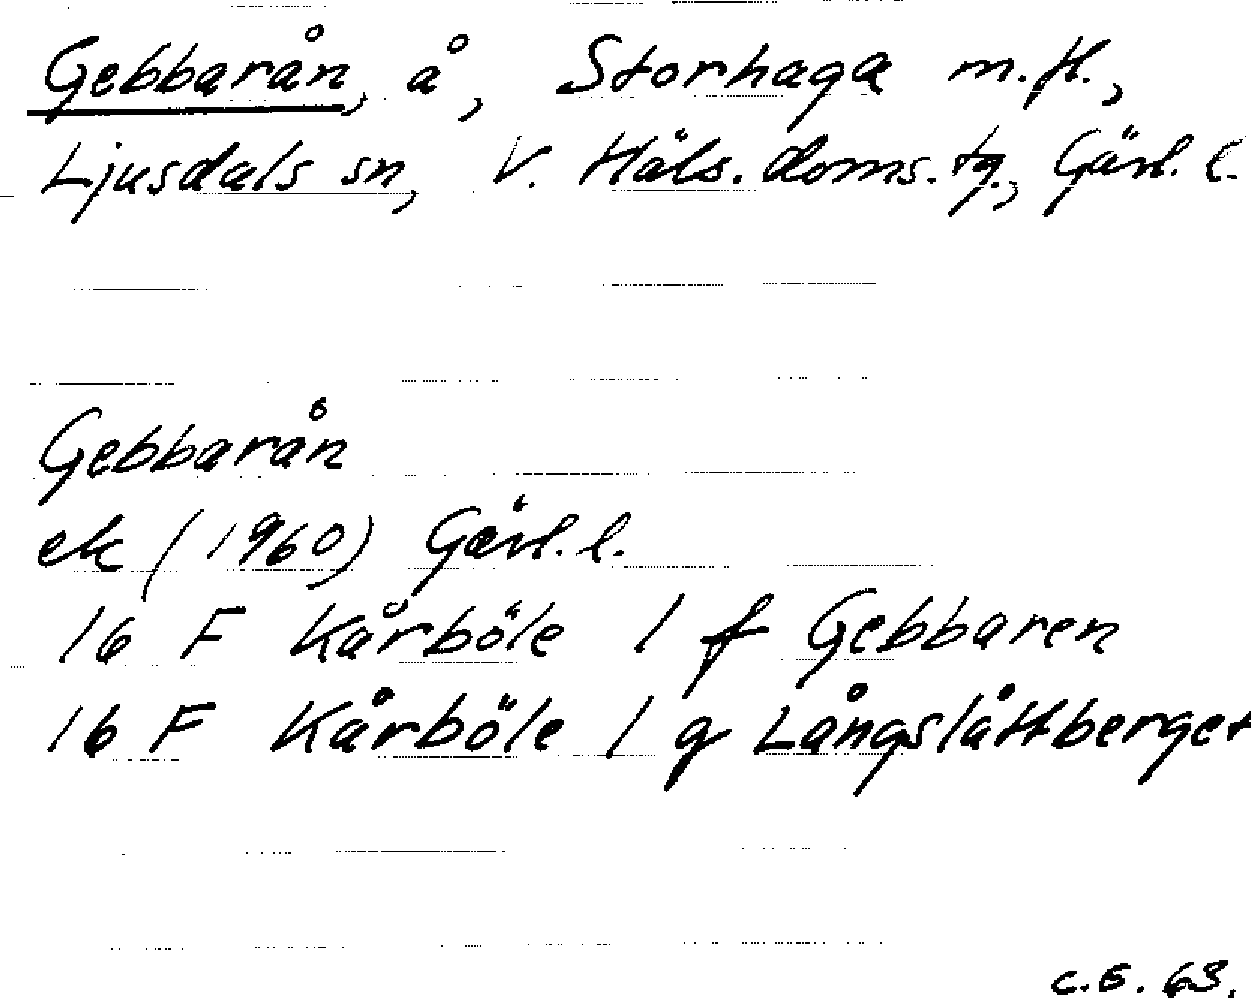 Gebbarån, å, Storhaga m.fl.,
Ljusdals sn, V. Häls. doms. tg., Gävl. l.
Gebbarån
ek (1960) Gävl. l.
16 F Kårböle 1 f Gebbaren
16 F Kårböle 1 g Långslåttberget
C.E. 63.